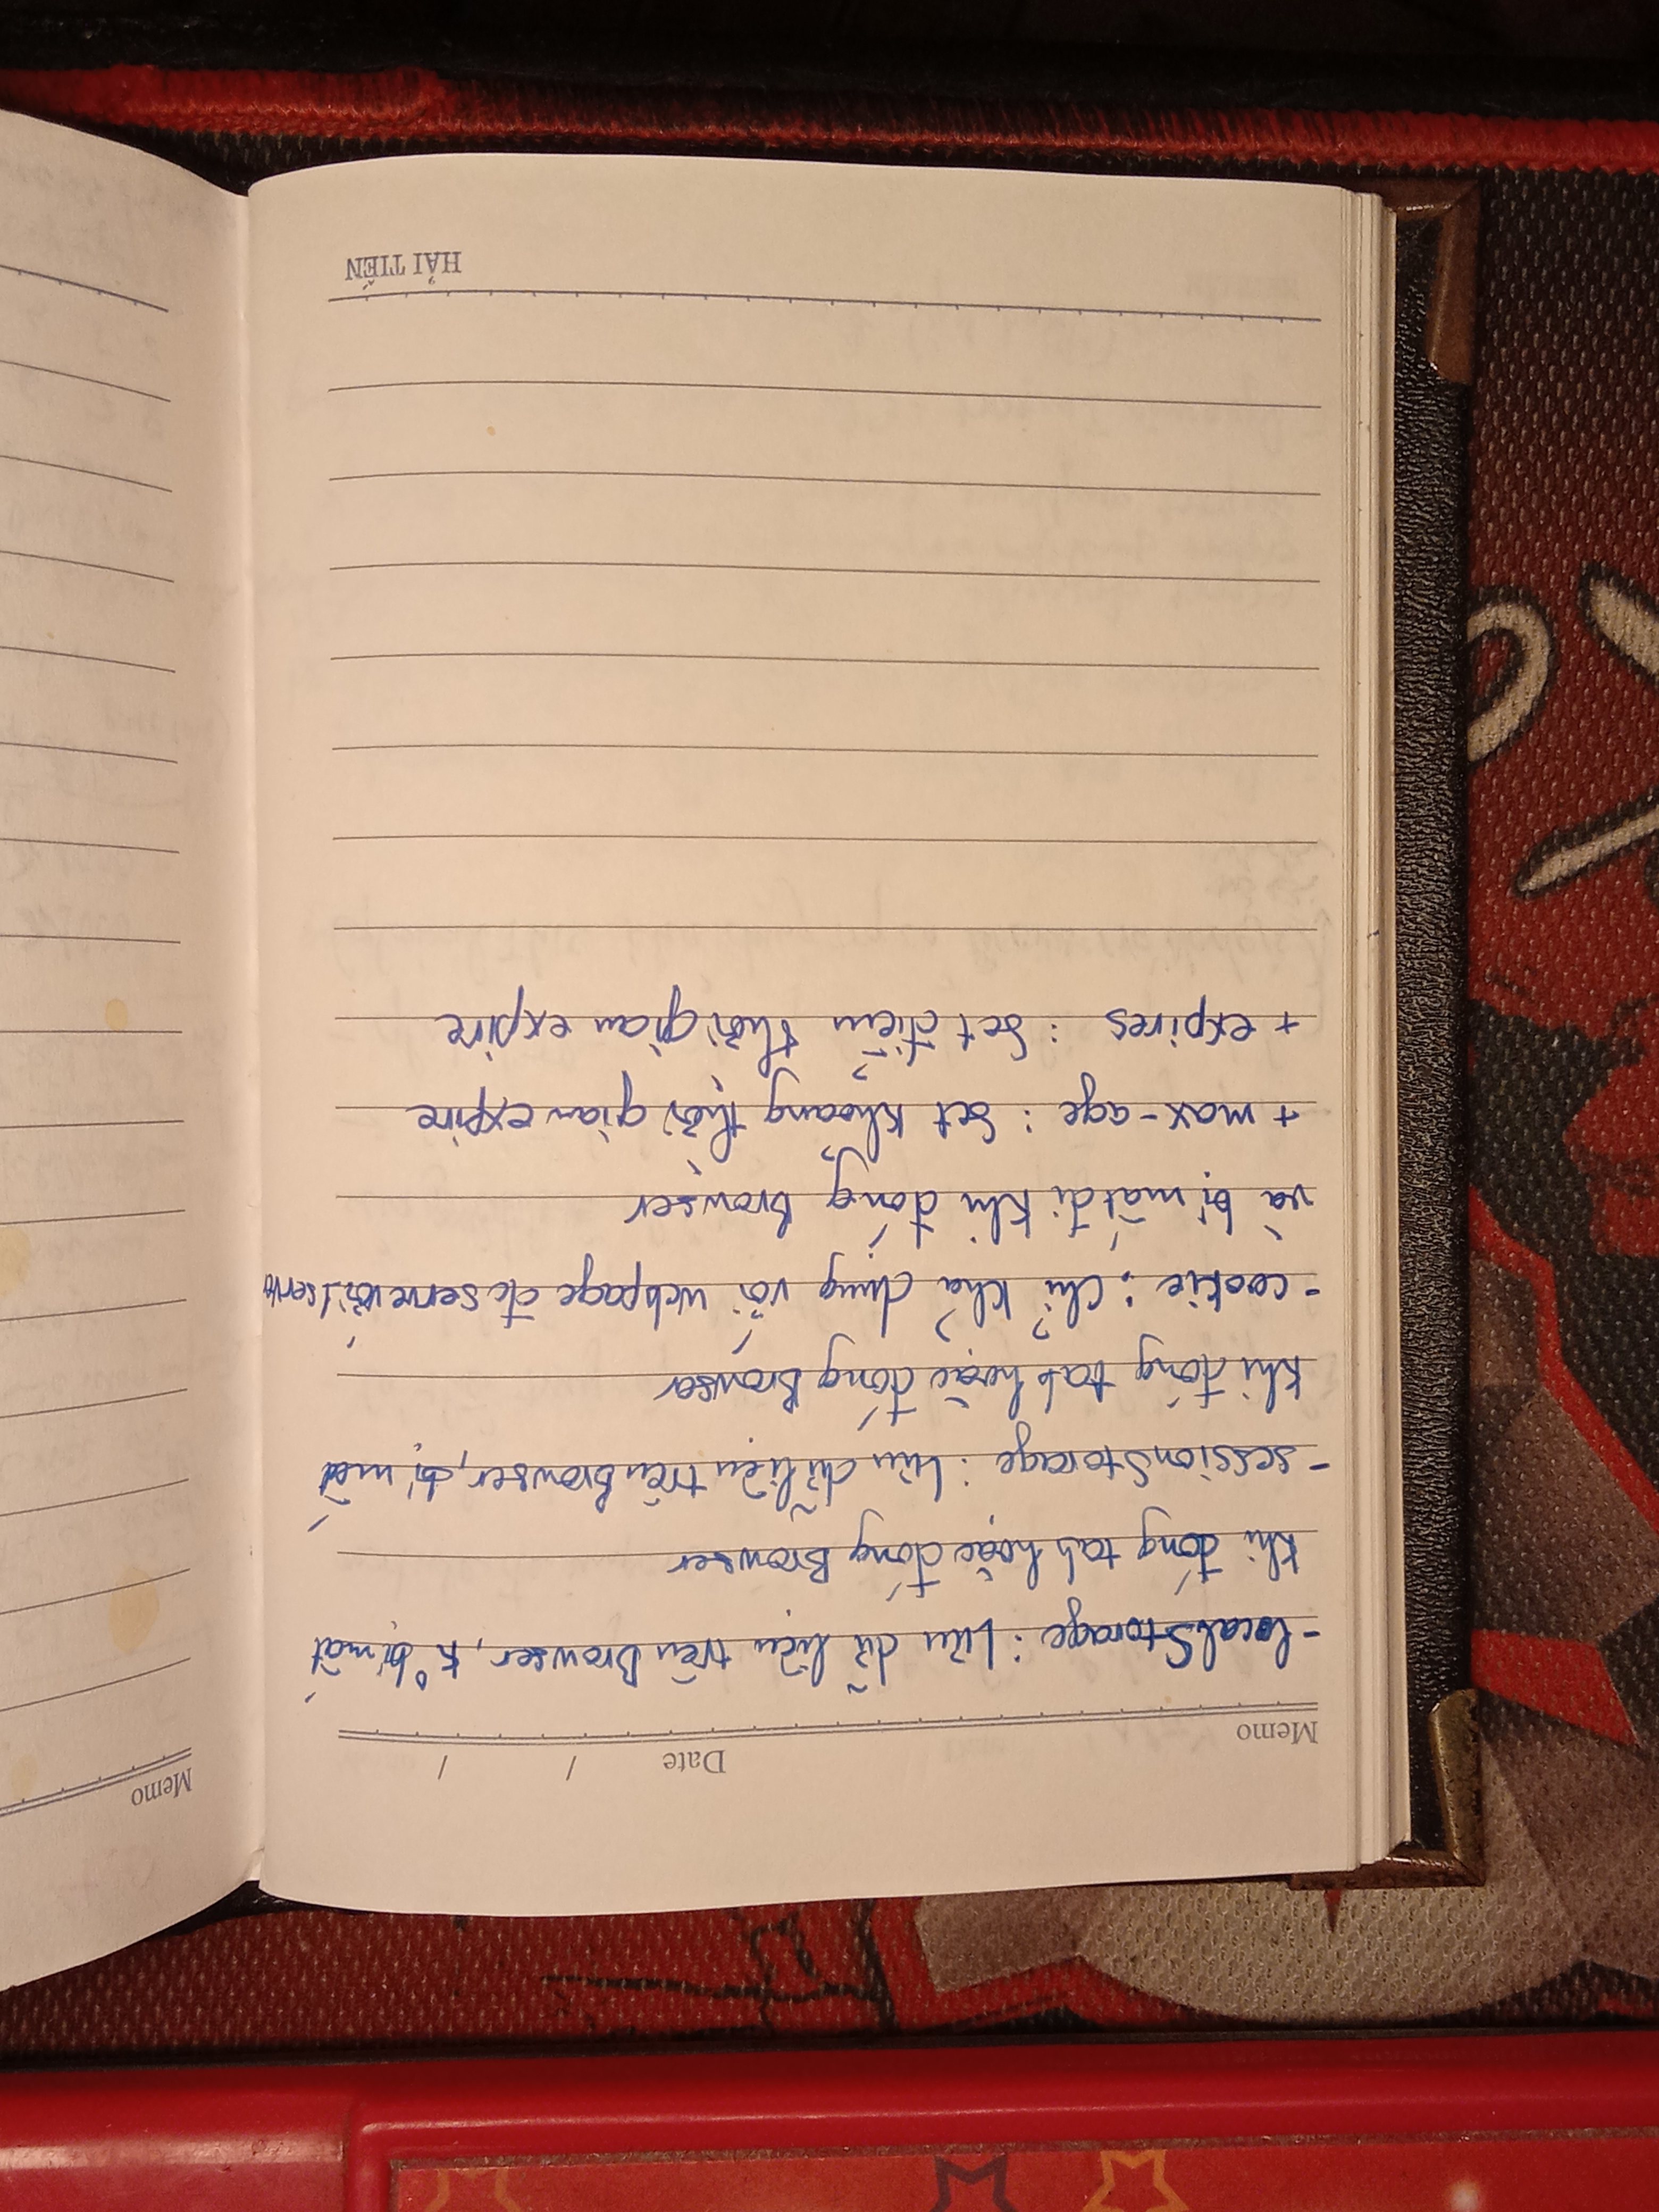 Memo Date / /
- localStorage : Lưu dữ liệu trên Browser, k° bị mất
khi đóng tab hoặc đóng Browser
- sessionStorage : Lưu dữ liệu trên Browser, bị mất
khi đóng tab hoặc đóng Browser
- cookie : chỉ khả dụng với webpage đc serve với 1 server
và bị mất đi khi đóng Browser
+ max-age : Set khoảng thời gian expire
+ expires : Set điểm thời gian expire
HẢI TIẾN
Memo